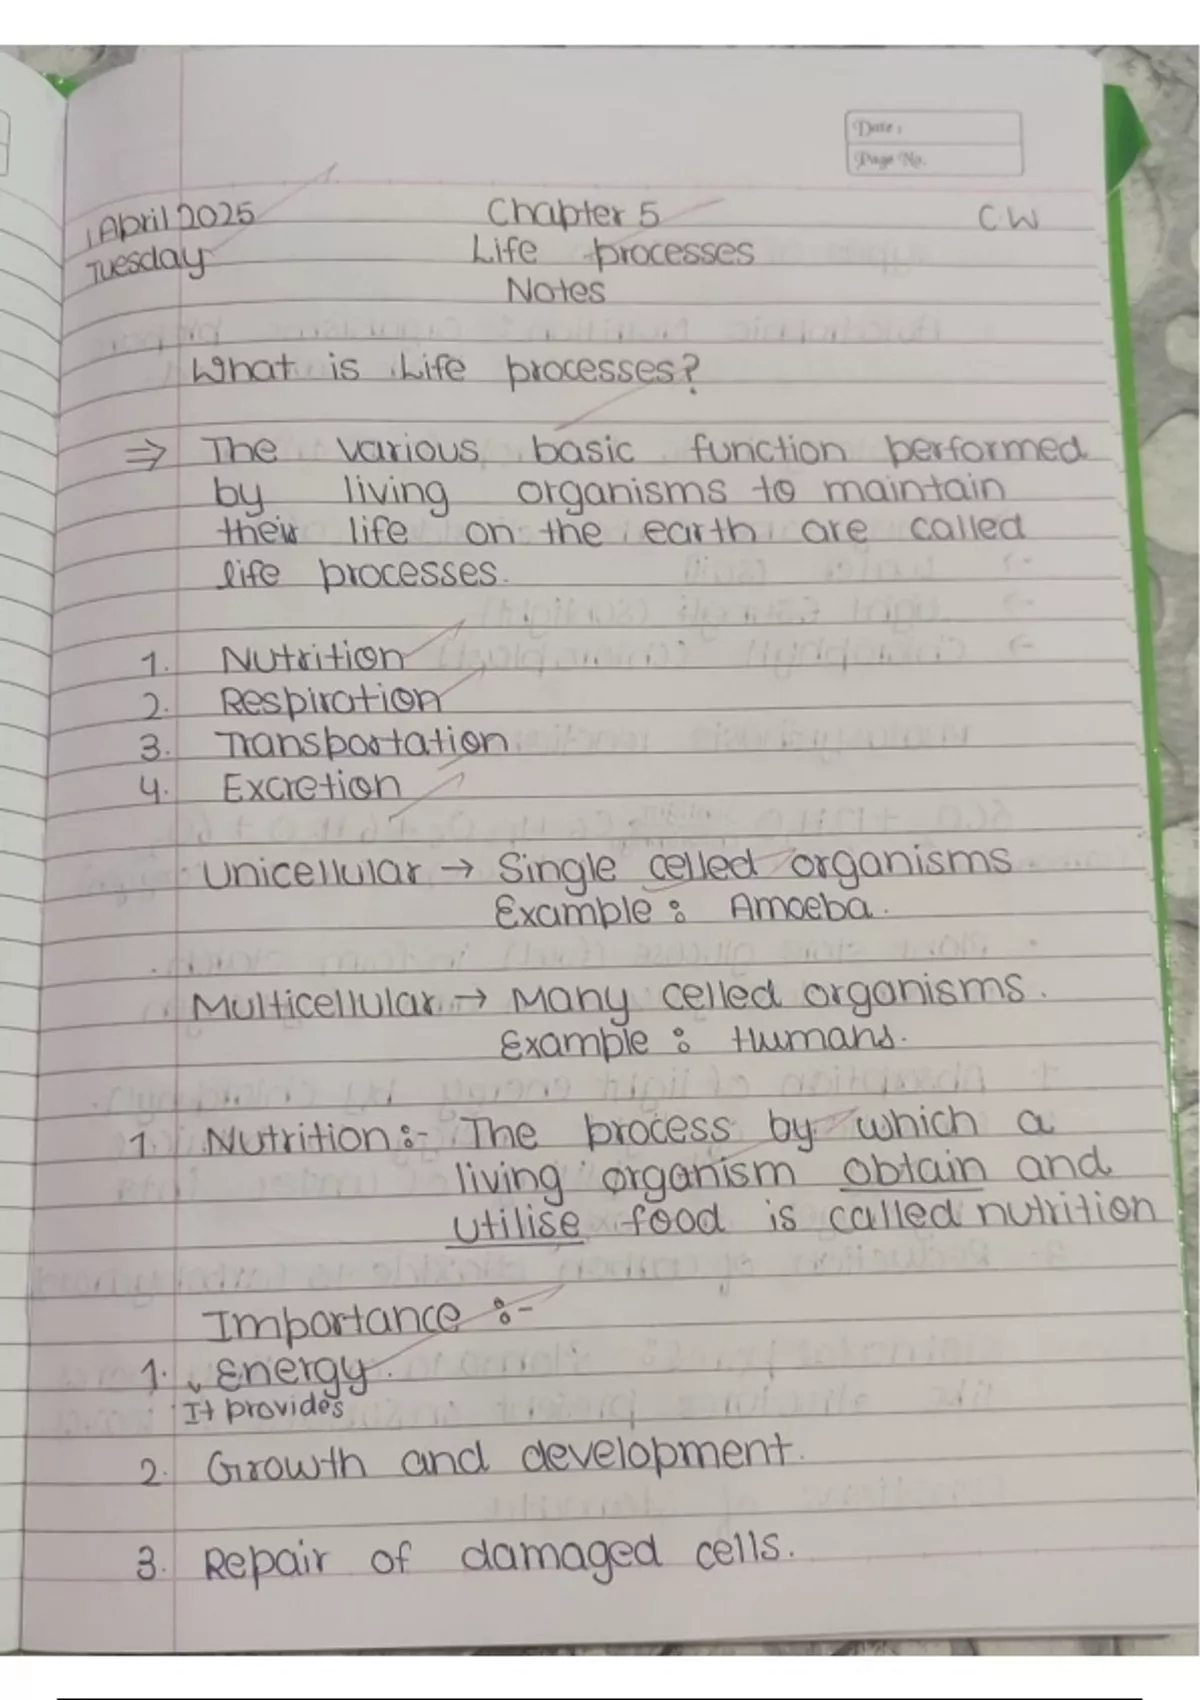 Date :
Page No.
1 April 2025 Chapter 5 C.W
Tuesday Life processes
Notes
What is Life processes?
⇒ The various basic function performed
by living organisms to maintain
their life on the earth are called
life processes.
1. Nutrition
2. Respiration
3. Transportation
4. Excretion
Unicellular → Single celled organisms
Example : Amoeba.
Multicellular → Many celled organisms.
Example : Humans.
1. Nutrition :- The process by which a
living organism obtain and
utilise food is called nutrition
Importance :-
1. Energy.
It provides
2. Growth and development.
3. Repair of damaged cells.